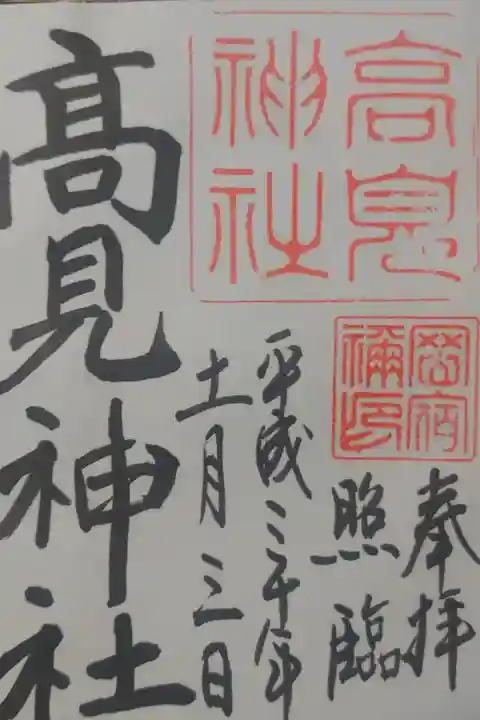 高見
神社
岡宿
禰印
奉拝
照臨
平成三十年
十一月三日
髙見神社